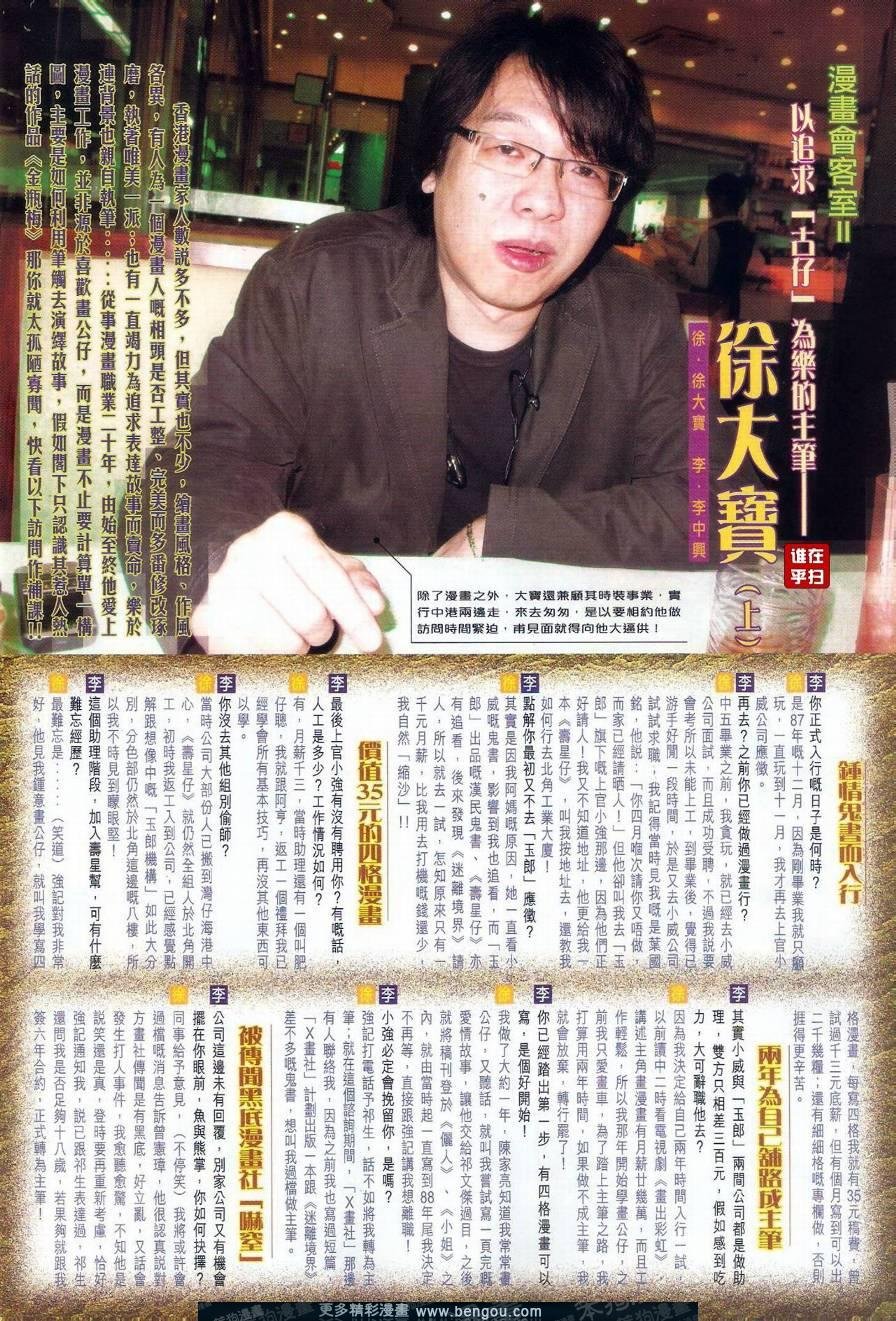 漫畫會客室II
以追求「古仔」為樂的主筆——
徐大寶(上)
徐．徐大寶　李．李中興
誰在
乎扫
香港漫畫家人數說多不多，但其實也不少，繪畫風格、作風
各異，有人為一個漫畫人嘅相頭是否工整、完美而多番修改琢
磨，執著唯美一派；也有一直竭力為追求表達故事而賣命，樂於
連背景也親自執筆……從事漫畫職業二十年，由始至終他愛上
漫畫工作，並非源於喜歡畫公仔，而是漫畫不止要計算單一構
圖，主要是如何利用筆觸去演繹故事，假如閣下只認識其惹人熱
話的作品《金瓶梅》那你就太孤陋寡聞，快看以下訪問作補課!!
除了漫畫之外，大寶還兼顧其時裝事業，實
行中港兩邊走，來去匆匆，是以要相約他做
訪問時間緊迫，甫見面就得向他大逼供！
鍾情鬼書而入行
李 你正式入行嘅日子是何時？
徐 是87年嘅十二月，因為剛畢業我就只顧
玩，一直玩到十一月，我才再去上官小
威公司應徵。
李 再去？之前你已經做過漫畫行？
徐 中五畢業之前，我貪玩，就已經去小威
公司面試，而且成功受聘，不過我說要
會考所以未能上工，到畢業後，覺得已
游手好閒一段時間，於是又去小威公司
試試求職，我記得當時見我嘅是葉國
銘，他說：「你四月嗰次請你又唔做，
而家已經請晒人！」但他卻叫我去「玉
郎」旗下嘅上官小強那邊，因為他們正
好請人！我又不知道地址，他更給我一
本《壽星仔》，叫我按地址去，還教我
如何行去北角工業大廈！
李 點解你最初又不去「玉郎」應徵？
徐 其實是因我阿媽嘅原因，她一直看小
威嘅鬼書，影響到我也追看，而「玉
郎」出品嘅漢民鬼書、《壽星仔》亦
有追看，後來發現《迷離境界》請
人，所以就去一試，怎知原來只有一
千元月薪，比我用去打機嘅錢還少，
我自然「縮沙」!!
價值35元的四格漫畫
李 最後上官小強有沒有聘用你？有嘅話，
人工是多少？工作情況如何？
徐 有，月薪千三，當時助理還有一個叫肥
仔聰，我就跟阿亨，返工一個禮拜我已
經學會所有基本技巧，再沒其他東西可
以學。
李 你沒去其他組別偷師？
徐 當時公司大部份人已搬到灣仔海港中
心，《壽星仔》就仍然全組人於北角開
工，初時我返工入到公司，已經感覺點
解跟想像中嘅「玉郎機構」如此大分
別，分色部仍然於北角這邊嘅八樓，所
以我不時見到矇眼堅！
李 這個助理階段，加入壽星幫，可有什麼
難忘經歷？
徐 最難忘是……（笑道）強記對我非常
好，他見我鍾意畫公仔，就叫我學寫四
格漫畫，每寫四格我就有35元稿費，曾
試過千三元底薪，但有個月寫到可以出
二千幾糧；還有細細格嘅專欄做，否則
捱得更辛苦。
兩年為自己舖路成主筆
李 其實小威與「玉郎」兩間公司都是做助
理，雙方只相差三百元，假如感到吃
力，大可辭職他去？
徐 因為我決定給自己兩年時間入行一試，
以前讀中二時看電視劇《畫出彩虹》，
講述主角畫漫畫有月薪廿幾萬，而且工
作輕鬆，所以我那年開始學畫公仔，之
前我只愛畫車，為了踏上主筆之路，我
打算用兩年時間，如果做不成主筆，我
就會放棄，轉行罷了！
李 你已經踏出第一步，有四格漫畫可以
寫，是個好開始！
徐 我做了大約一年，陳家亮知道我常常畫
公仔，又聽話，就叫我嘗試寫一頁完嘅
愛情故事，讓他交給祁文傑過目，之後
就將稿刊登於《儷人》、《小姐》之
內，就由當時起一直寫到88年尾我決定
不再等，直接跟強記講我想離職！
李 小強必定會挽留你，是嗎？
徐 強記打電話予祁生，話不如將我轉為主
筆；就在這個諮詢期間，「X畫社」那邊
有人聯絡我，因為之前我也寫過短篇，
「X畫社」計劃出版一本跟《迷離境界》
差不多嘅鬼書，想叫我過檔做主筆。
被傳聞黑底漫畫社「嚇窒」
李 公司這邊未有回覆，別家公司又有機會
擺在你眼前，魚與熊掌，你如何抉擇？
徐 同事給予意見，（不停笑）我將或許會
過檔嘅消息告訴曾憲瑋，他很認真說對
方畫社傳聞是有黑底，好立亂，又話會
發生打人事件，我愈聽愈驚，不知他是
說笑還是真，登時要再重新考慮，恰好
強記通知我，說已跟祁生表達過，祁生
還問我是否足夠十八歲，若果夠就跟我
簽六年合約，正式轉為主筆！
更多精彩漫畫 www.bengou.com